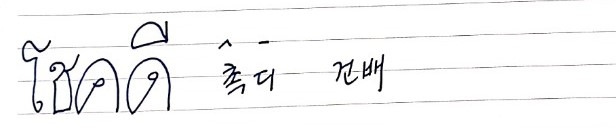 โชคดี 촉디 건배